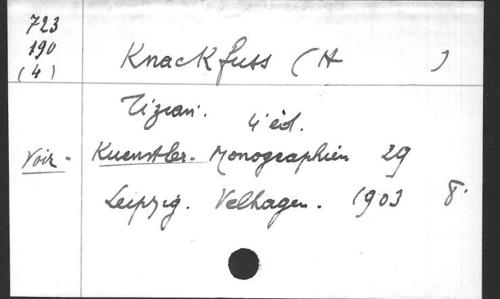 723
190
(4)
Knackfuss (H )
Tizian. 4' éd.
Voir - Kuenstler. Monographien 29
Leipzig. Velhagen. 1903 8°